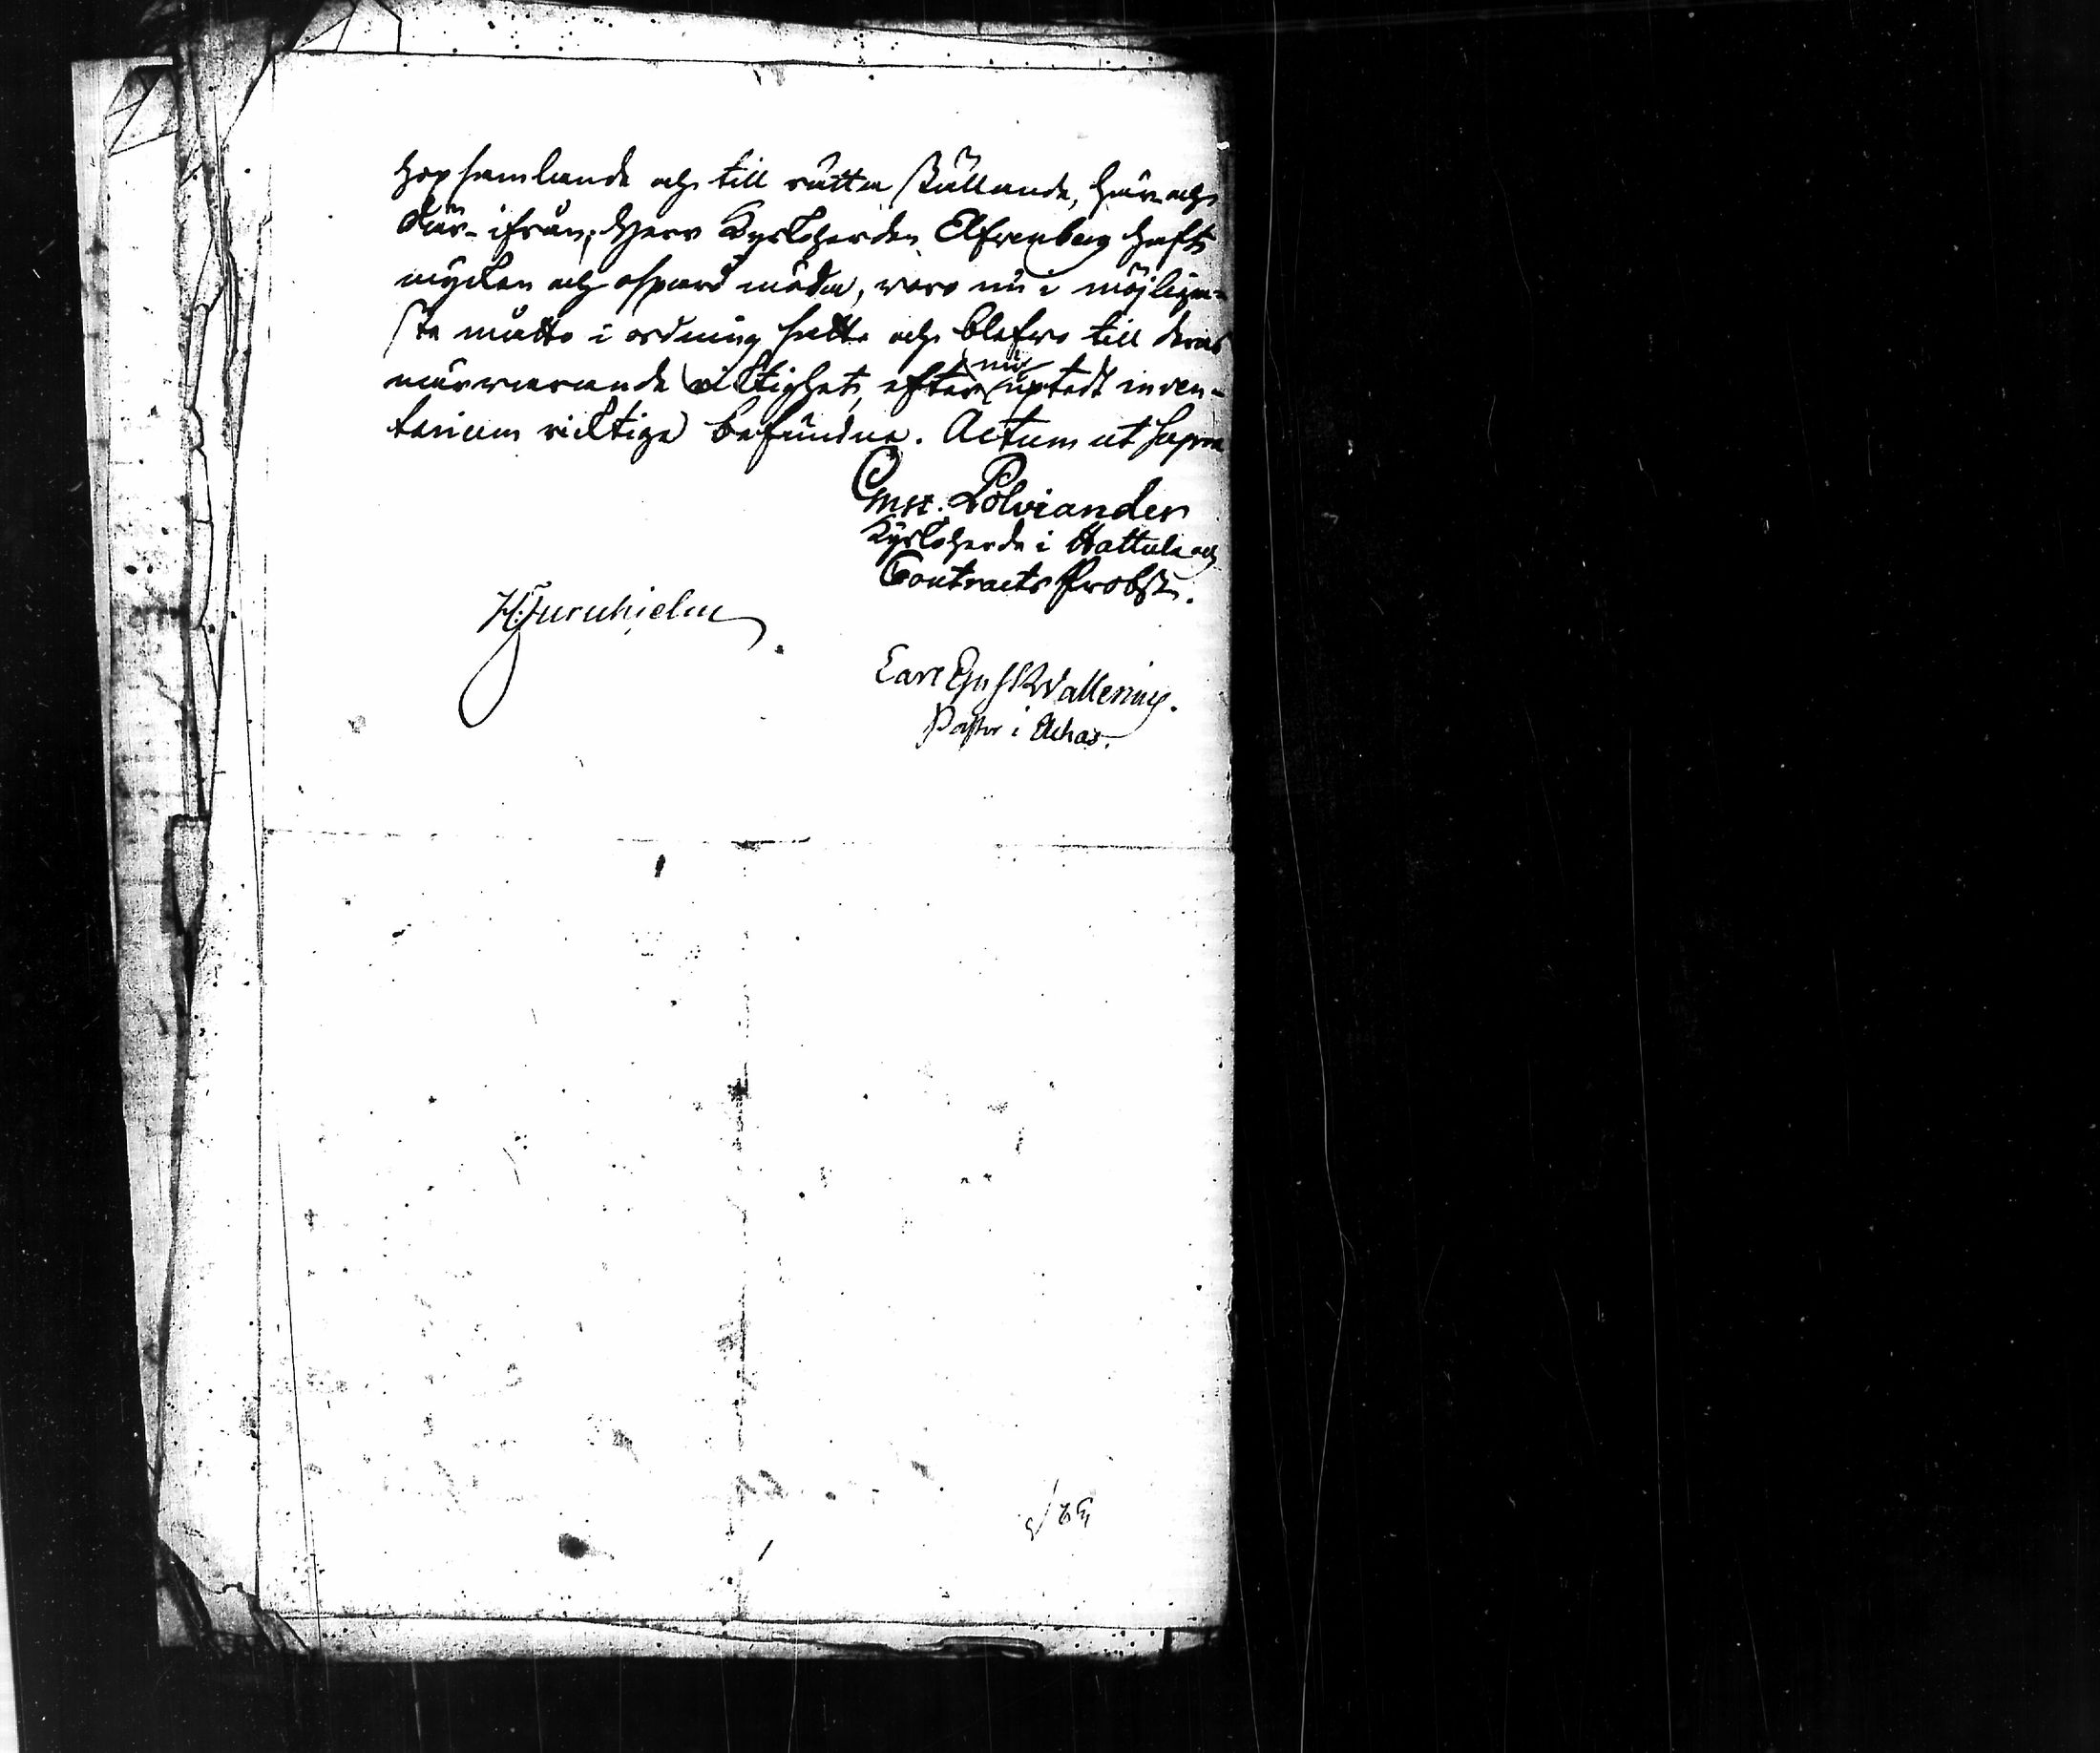 hopsamlande och till rätta ställande, här och
där-ifrån, Herr Kyrkoherden Elfvenberg haft
mycken och ospard möda, woro nu i möjliga-
ste måtto i ordning satte och blefwo till deras
närwarande wiktighet, efter nu uptedt inven-
tarium ricktige befundne. Actum ut supra
Polviander
Kyrkoherde i Hattula och
Contracts Probst.
H. Furuhielm
Carl Wallenius.
Pastor i Achas.